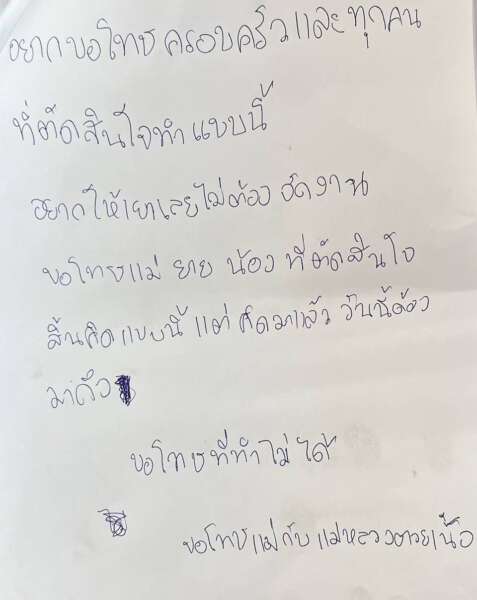 อยากขอโทษครอบครัวและทุกคน
ที่ตัดสินใจทำแบบนี้
อยากให้เผาเลยไม่ต้องจัดงาน
ขอโทษแม่ ยาย น้อง ที่ตัดสินใจ
สิ้นคิดแบบนี้ แต่คิดมาแล้ว วันนี้ต้อง
มาถึง
ขอโทษที่ทำไม่ได้
ขอโทษแม่กับแม่หลวงด้วย